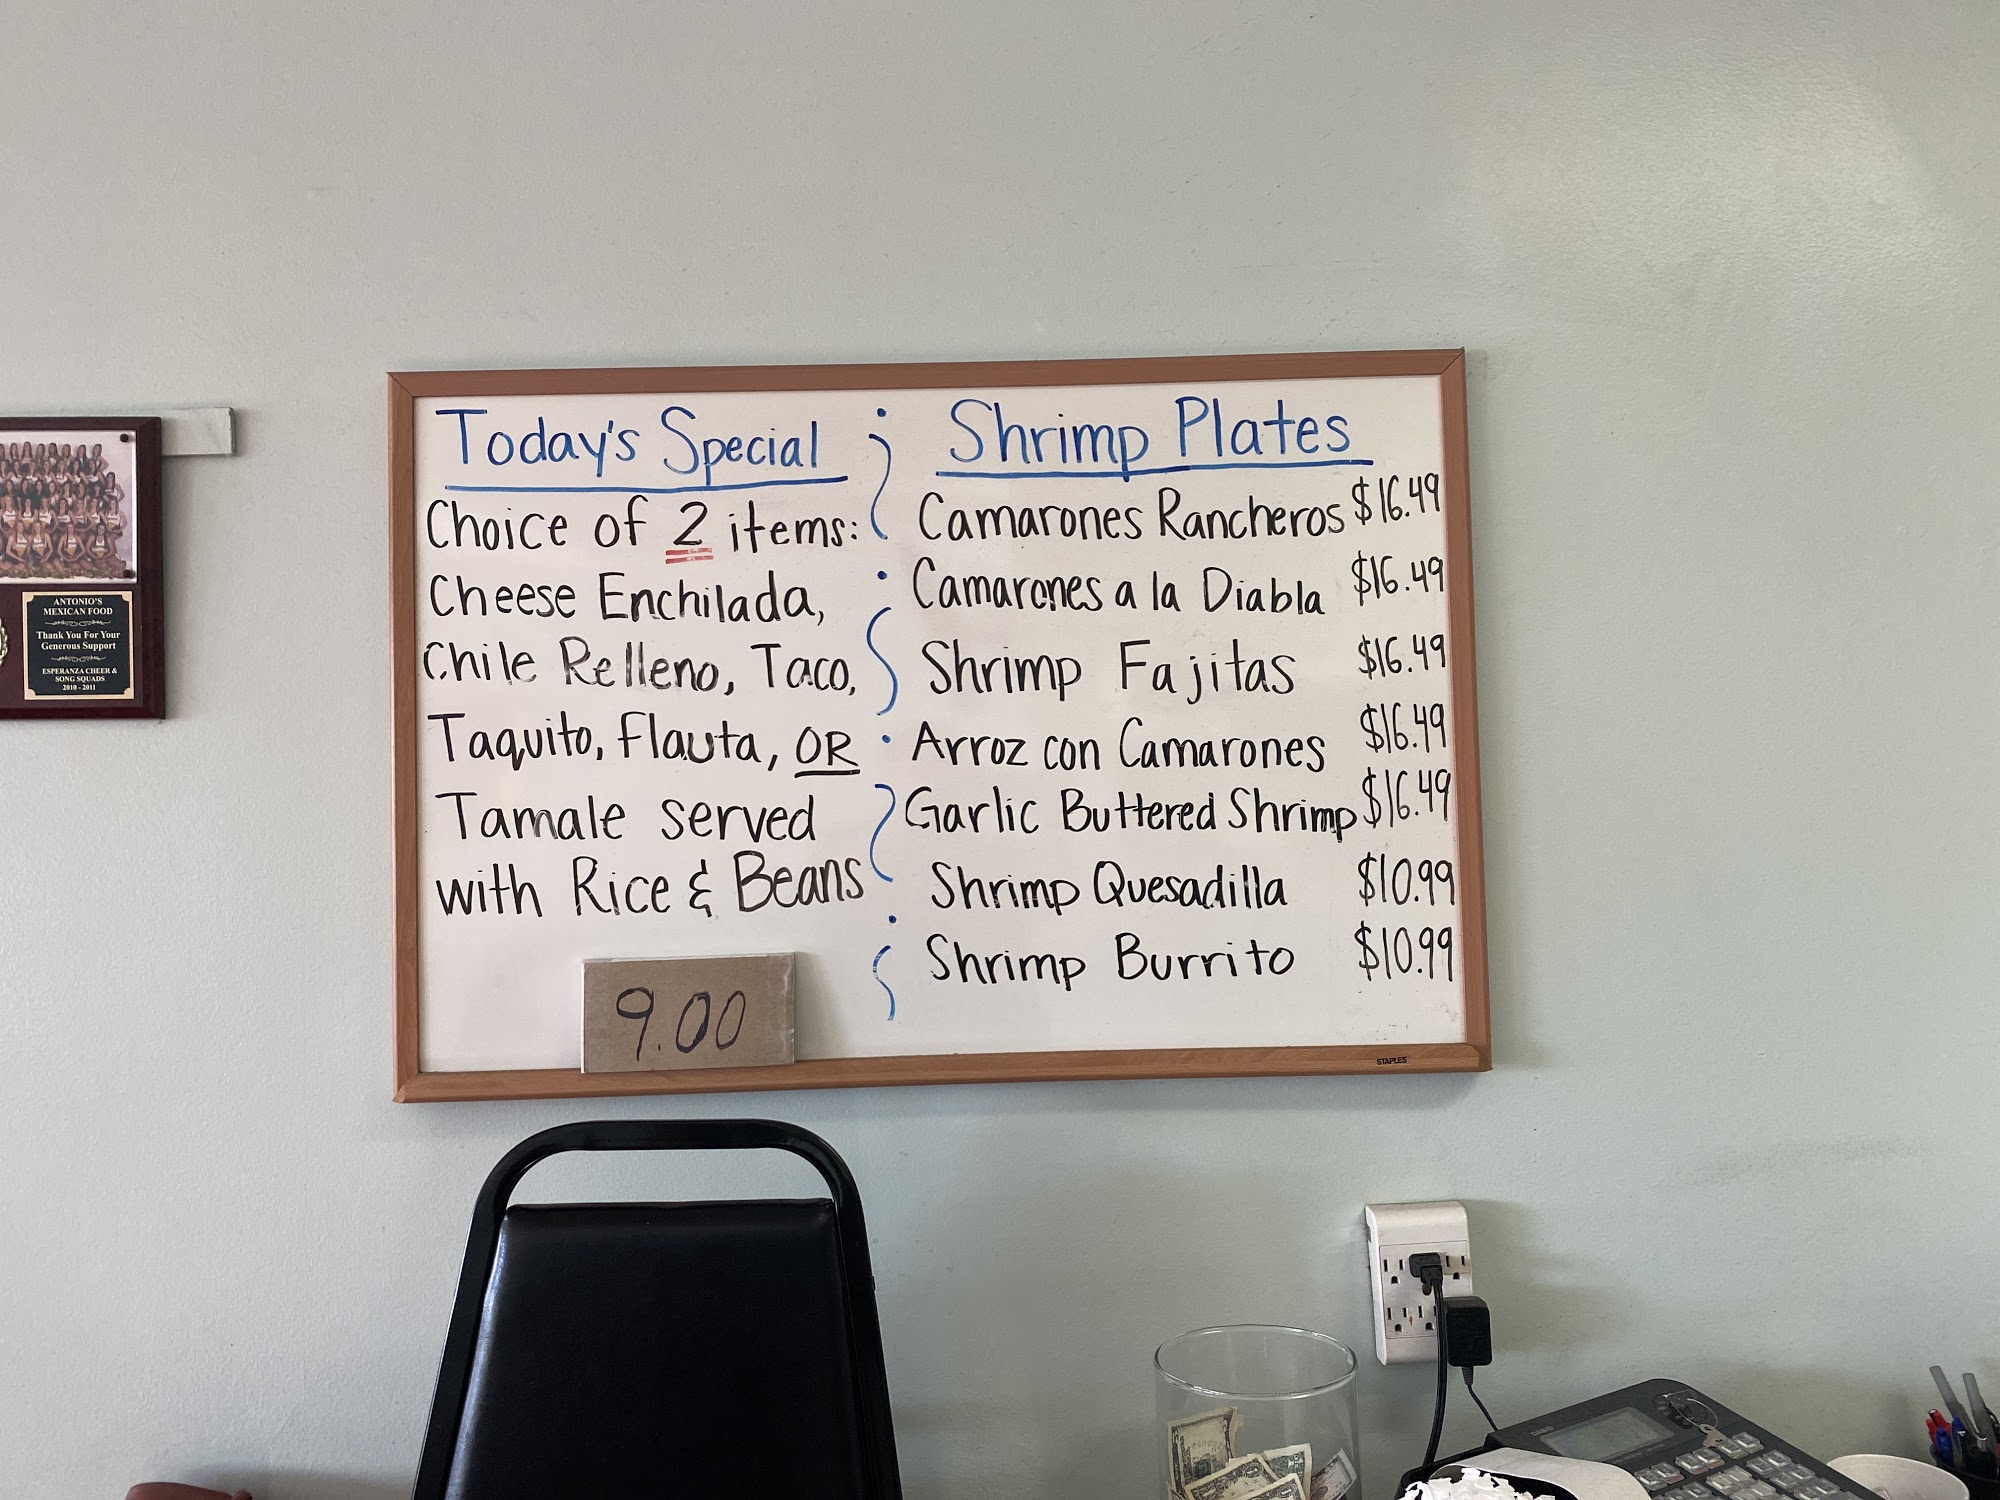 Today's Special
Choice of 2 items:
Cheese Enchilada,
Chile Relleno, Taco,
Taquito, Flauta, OR
Tamale served
with Rice & Beans
9.00
Shrimp Plates
Camarones Rancheros $16.49
Camarones a la Diabla $16.49
Shrimp Fajitas $16.49
Arroz con Camarones $16.49
Garlic Buttered Shrimp $16.49
Shrimp Quesadilla $10.99
Shrimp Burrito $10.99
STAPLES
ANTONIO'S
MEXICAN FOOD
Thank You For Your
Generous Support
ESPERANZA CHEER &
SONG SQUADS
2010 - 2011
CASIO